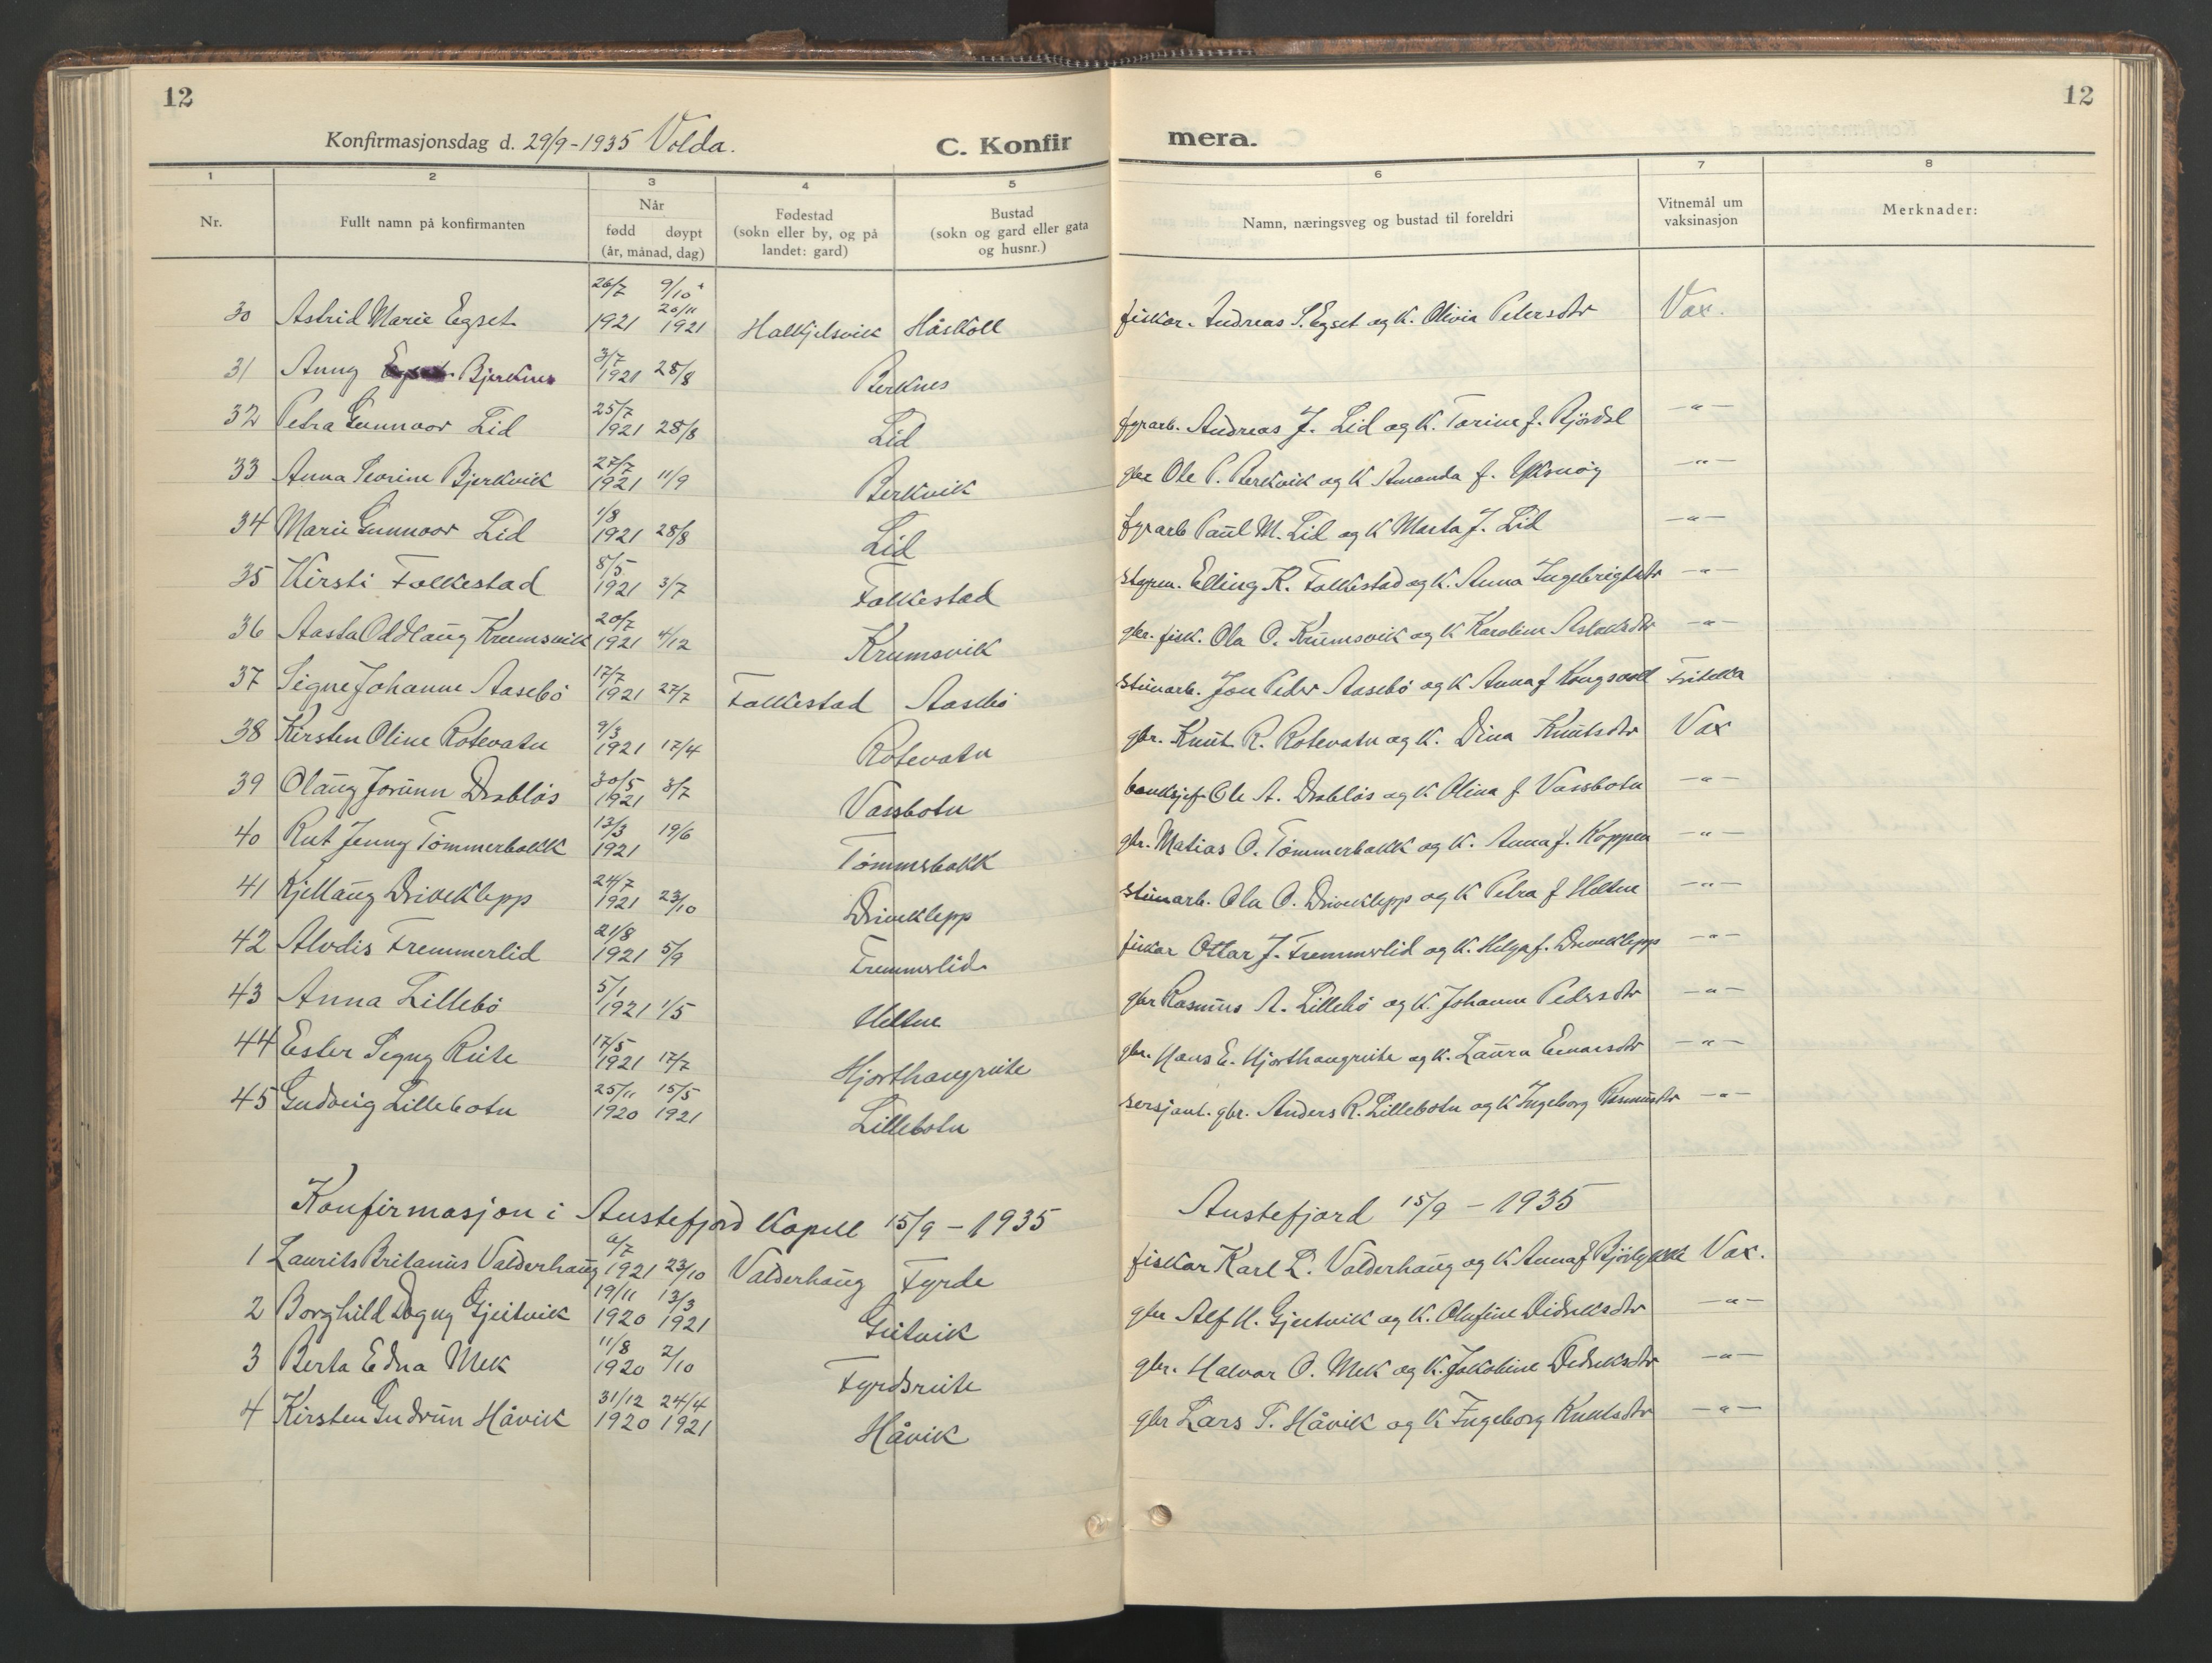 12
Konfirmasjonsdag d. 29/9-1935 Volda.
C. Konfirmera.
12
1 2 3 4 5 6 7 8
Nr. Fullt namn på konfirmanten Når født døypt (år, månad, dag) Fødestad (sokn eller by, og på landet: gard) Bustad (sokn og gard eller gata og husnr.) Namn, næringsveg og bustad til foreldri Vitnemål um vaksinasjon Merknader:
30 Astrid Marie Egset 26/7 1921 9/10 20/11 1921 Halkjelsvik Håskoll fiskar. Andreas S. Egset og K. Olivia Petersdtr Vax.
31 Anny Bjerknes 3/7 1921 28/8 Berknes
32 Petra Gunnvor Lid 25/7 1921 28/8 Lid fyrarb. Andreas J. Lid og K. Torine f. Bjørdal —"—
33 Anna Severine Bjerkvik 27/7 1921 11/9 Berkvik gbr Ole P. Berkvik og K Amanda f. Yksnøy —"—
34 Marie Gunnvor Lid 1/8 1921 28/8 Lid fyrarb Paul M. Lid og K Marta J. Lid —"—
35 Kirsti Folkestad 8/5 1921 3/7 Folkestad Elling K. Folkestad og K. Anna Ingebrigtsdtr —"—
36 Aasta Oddlaug Krumsvik 20/7 1921 4/12 Krumsvik gbr. fisk. Ola O. Krumsvik og K Karoline Aslaksdtr —"—
37 Signe Johanne Aasebö 17/7 1921 27/7 Folkestad Aasebö Jon Peder Aasebö og K Anna f Kongsvoll Fritekka
38 Kirsten Oline Rotevatn 9/3 1921 17/4 Rotevatn gbr. Knut R. Rotevatn og K. Dina Knutsdtr Vax
39 Olaug Jorunn Drabløs 30/5 1921 3/7 Vassbotn banksjef Ole A. Drabløs og K Olina f Vassbotn —"—
40 Rut Jenny Tömmerbakk 13/3 1921 19/6 Tömmerbakk gbr. Matias O. Tömmerbakk og K. Anna f. Koppen —"—
41 Kjellaug Driveklepp 24/7 1921 23/10 Driveklepp Ola O. Driveklepp og K Petra f Heltne —"—
42 Alvdis Fremmerlid 21/8 1921 5/9 Fremmerlid fiskar Ottar J. Fremmerlid og K. Helga f. Driveklepp —"—
43 Anna Lillebö 5/1 1921 1/5 Heltne gbr Rasmus A. Lillebö og K. Johanne Pedersdtr —"—
44 Ester Signy Riite 17/5 1921 17/7 Hjorthaugriite gbr. Hans E. Hjorthaugriite og K. Laura Einarsdtr —"—
45 Gudveig Lillebotn 25/11 1920 15/5 1921 Lillebotn sersjant. gbr. Anders R. Lillebotn og K Ingeborg Rasmusdtr —"—
Konfirmasjon i Austefjord Kapell 15/9 - 1935 Austefjord 15/9 - 1935
1 Laurits Britanus Valderhaug 1921 23/10 Valderhaug Fyrde fiskar Karl L. Valderhaug og K Anna f Bjørlykke Vax.
2 Borghild Dagny Gjeitvik 19/11 1920 13/3 1921 Geitvik gbr Alf H. Gjeitvik og K. Olufine Didriksdtr —"—
3 Berta Edna Mek 11/8 1920 2/10 Fyrdsriite gbr. Halvar O. Mek og K. Jakobine Didriksdtr —"—
4 Kirsten Gudrun Håvik 31/12 1920 24/4 1921 Håvik gbr Lars T. Håvik og K Ingeborg Knutsdtr —"—